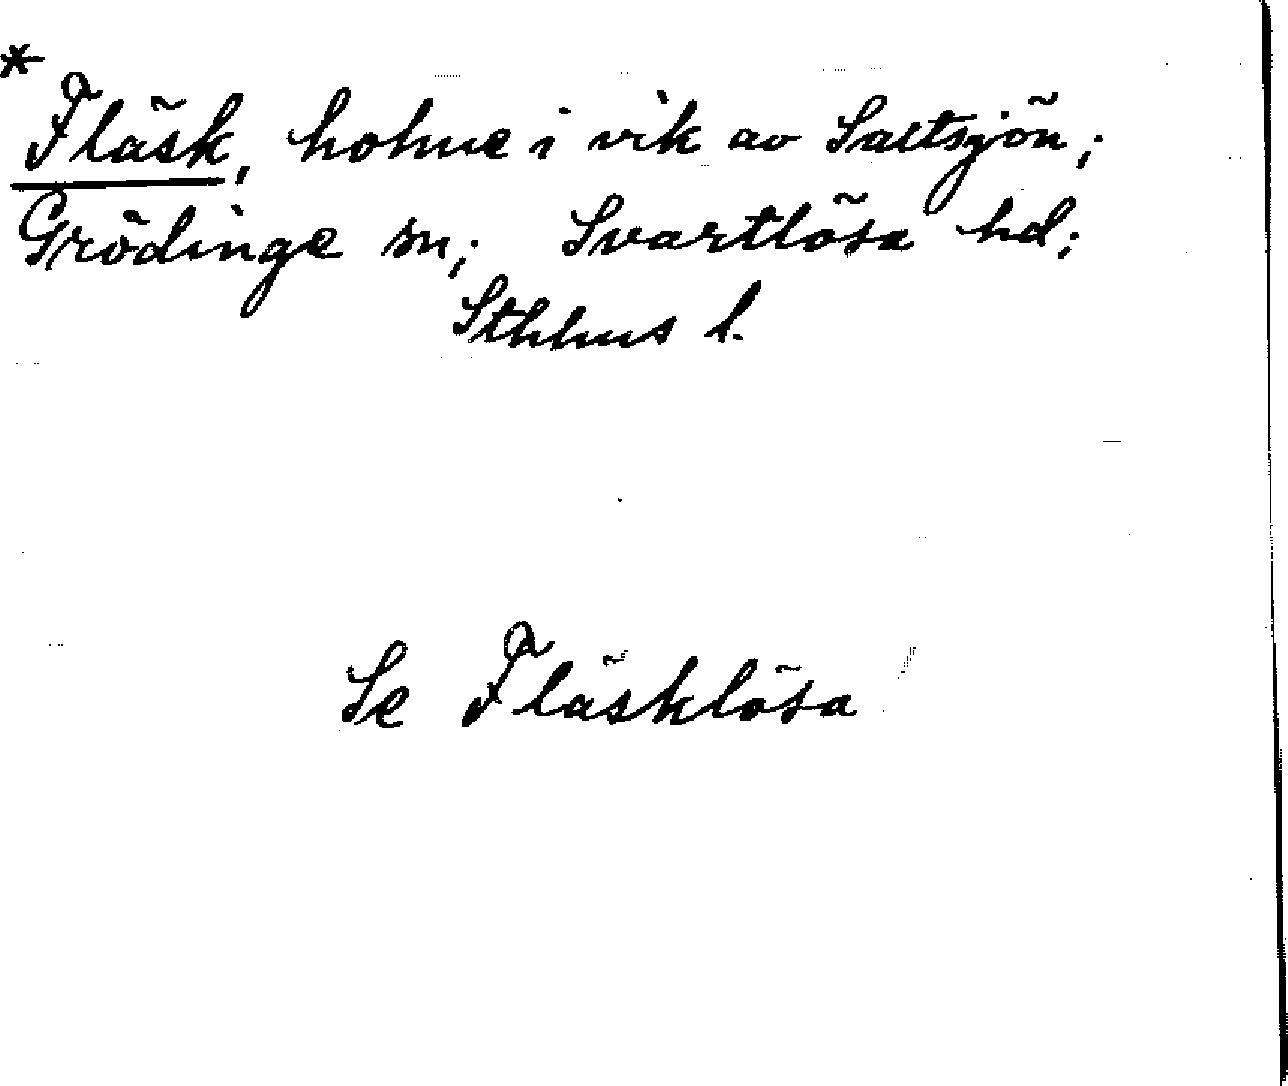 *
Fläsk, holme i vik av Saltsjön;
Grödinge sn; Svartlösa hd;
Sthlms l.
Se Fläsklösa